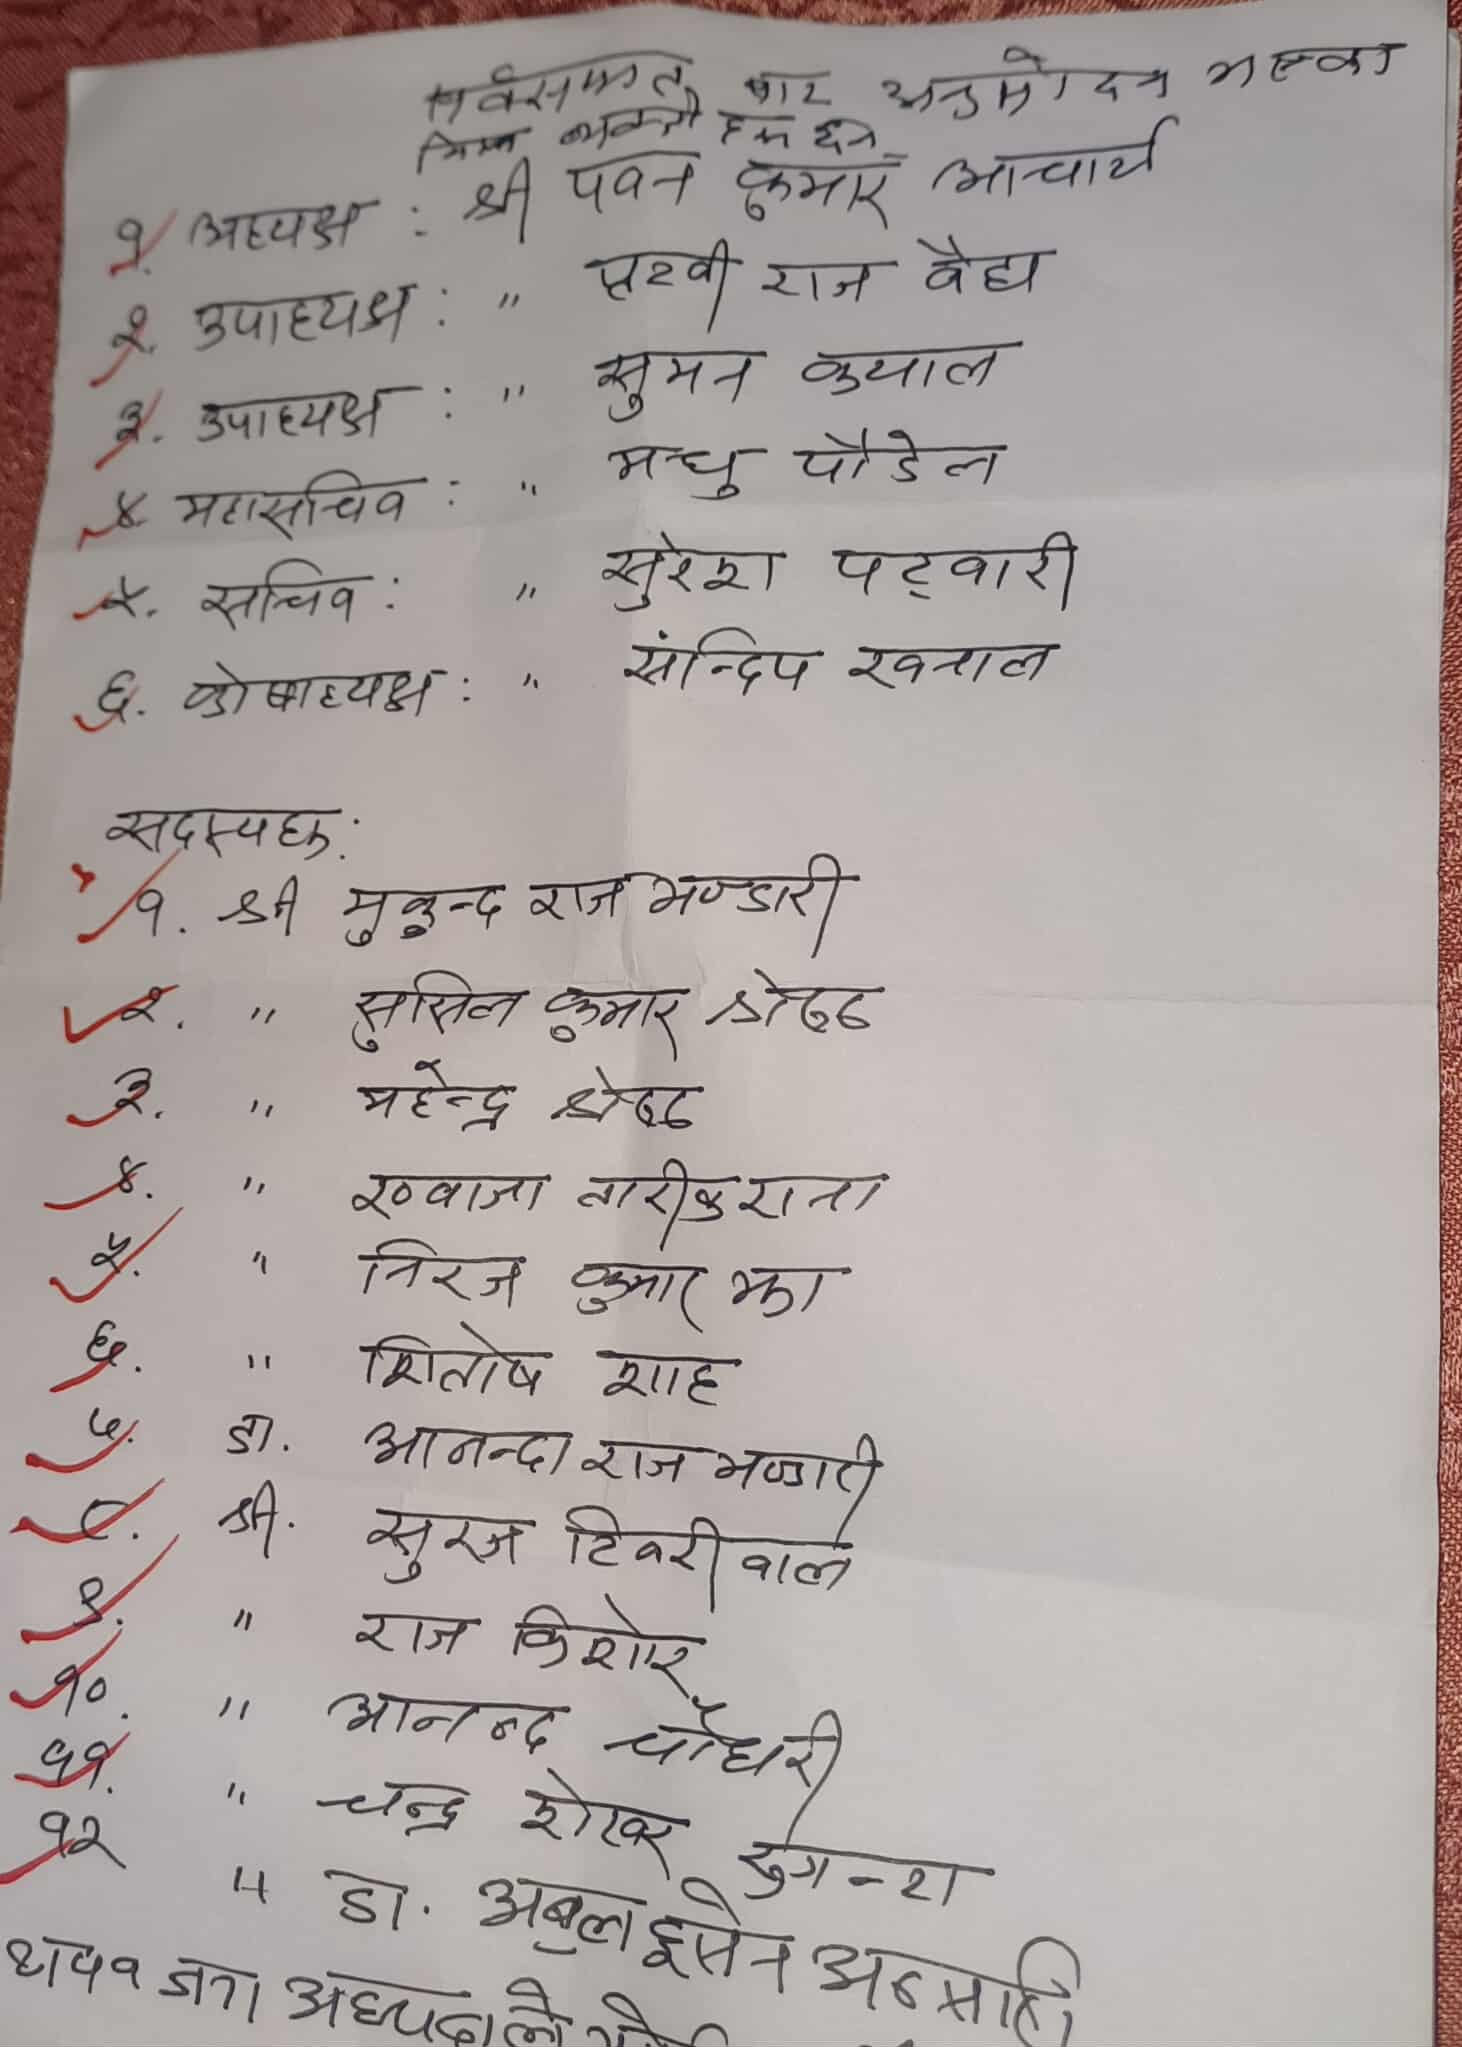 सर्वसम्मत बाट अनुमोदन भएका
निम्न व्यक्ती हरू छन्
१. अध्यक्ष : श्री पवन कुमार आचार्य
२. उपाध्यक्ष : " पृथ्वी राज वैद्य
३. उपाध्यक्ष : " सुमन कयाल
४. महासचिव : " मधु पौडेल
५. सचिव : " सुरेश पट्वारी
६. कोषाध्यक्ष : " सन्दिप खनाल
सदस्यहरू:
१. श्री मुकुन्द राज भण्डारी
२. " सुसिल कुमार श्रेष्ठ
३. " महेन्द्र श्रेष्ठ
४. " ख्वाजा तारीक
५. " निरज कुमार झा
६. " शितोष शाह
७. डा. आनन्दा राज भण्डारी
८. श्री. सुरज टिवरीवाल
९. " राज किशोर
१०. " आनन्द चौधरी
११. " चन्द्र शेखर
१२ " डा. अबुल हुसेन अन्सारी
अध्यक्षले